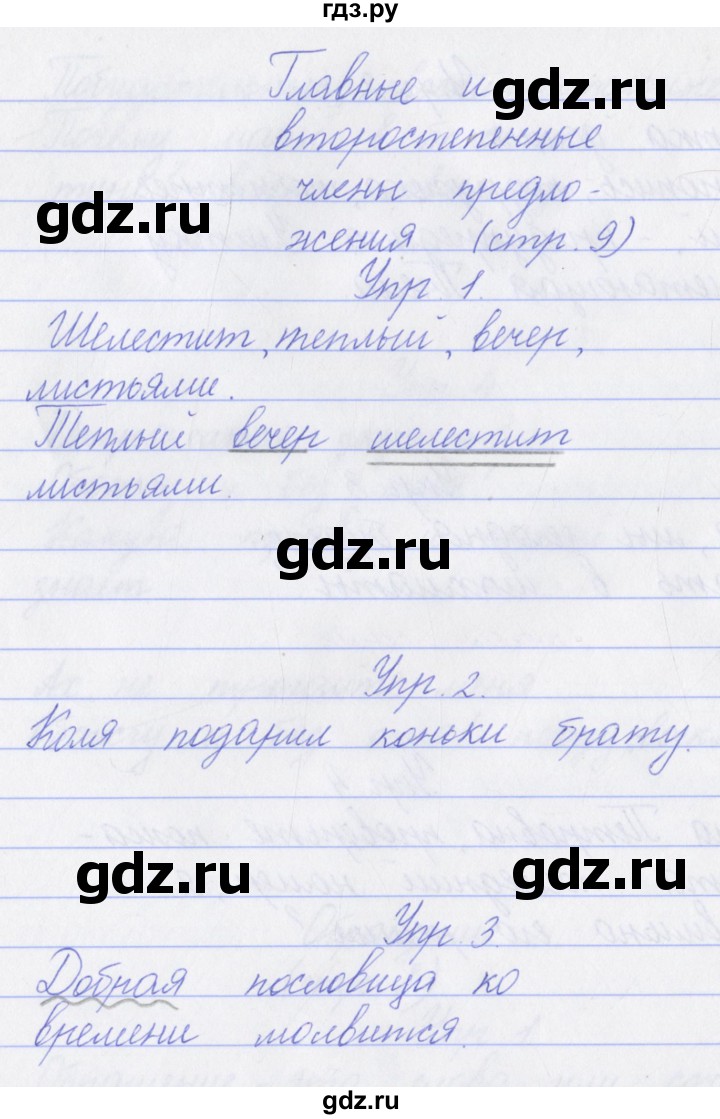 гдз.ру
Главные и
gdz.ru
второстепенные
члены предло-
gdz.ru
жения (стр. 9)
Упр. 1.
Шелестит, теплый, вечер,
листьями.
Теплый вечер шелестит
листьями.
gdz.ru
Упр. 2.
Коля подарил коньки брату.
gdz.ru
gdz.ru
Упр. 3.
Добрая пословица ко
времени молвится.
gdz.ru